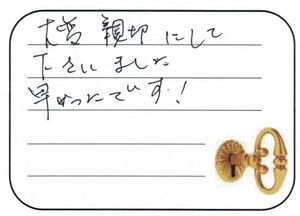 大変親切にして
下さいました
早かったです!